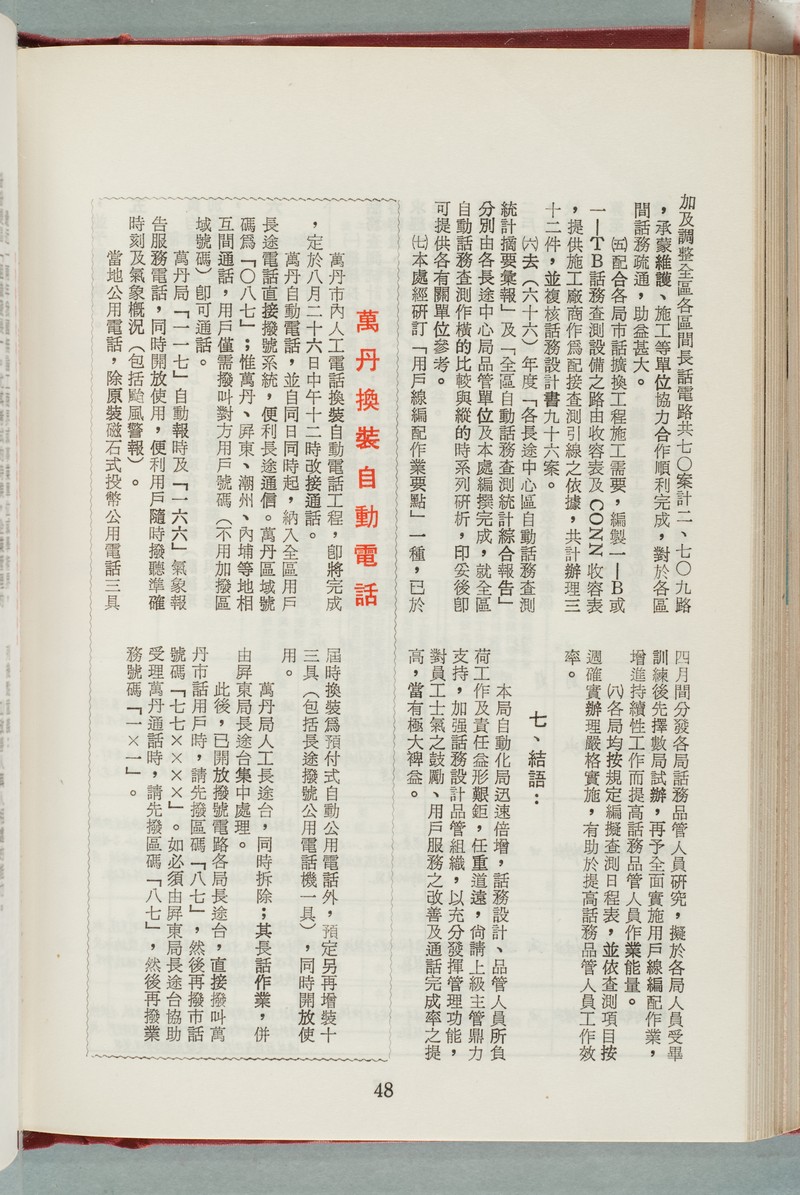 加及調整全區各區間長話電路共七〇案計二、七〇九路
，承蒙維護、施工等單位協力合作順利完成，對於各區
間話務疏通，助益甚大。
㈤配合各局市話擴換工程施工需要，編製一—B或
一—TB話務查測設備之路由收容表及CONN收容表
，提供施工廠商作爲配接查測引線之依據，共計辦理三
十二件，並複核話務設計書九十六案。
㈥去（六十六）年度「各長途中心區自動話務查測
統計摘要彙報」及「全區自動話務查測統計綜合報告」
分別由各長途中心局品管單位及本處編撰完成，就全區
自動話務查測作橫的比較與縱的時系列研析，印妥後卽
可提供各有關單位參考。
㈦本處經研訂「用戶線編配作業要點」一種，已於
四月間分發各局話務品管人員研究，擬於各局人員受畢
訓練後先擇數局試辦，再予全面實施用戶線編配作業，
增進持續性工作而提高話務品管人員作業能量。
㈧各局均按規定編擬查測日程表，並依查測項目按
週確實辦理嚴格實施，有助於提高話務品管人員工作效
率。
七、結語：
本局自動化局迅速倍增，話務設計、品管人員所負
荷工作及責任益形艱鉅，任重道遠，尙請上級主管鼎力
支持，加强話務設計品管組織，以充分發揮管理功能，
對員工士氣之鼓勵、用戶服務之改善及通話完成率之提
高，當有極大裨益。
萬丹換裝自動電話
萬丹市內人工電話換裝自動電話工程，卽將完成
，定於八月二十六日中午十二時改接通話。
萬丹自動電話，並自同日同時起，納入全區用戶
長途電話直接撥號系統，便利長途通信。萬丹區域號
碼爲「〇八七」；惟萬丹、屏東、潮州、內埔等地相
互間通話，用戶僅需撥叫對方用戶號碼（不用加撥區
域號碼）卽可通話。
萬丹局「一一七」自動報時及「一六六」氣象報
告服務電話，同時開放使用，便利用戶隨時撥聽準確
時刻及氣象概況（包括颱風警報）。
當地公用電話，除原裝磁石式投幣公用電話三具
屆時換裝爲預付式自動公用電話外，預定另再增裝十
三具（包括長途撥號公用電話機一具），同時開放使
用。
萬丹局人工長途台，同時拆除；其長話作業，併
由屏東局長途台集中處理。
此後，已開放撥號電路各局長途台，直接撥叫萬
丹市話用戶時，請先撥區碼「八七」，然後再撥市話
號碼「七七××××」。如必須由屏東局長途台協助
受理萬丹通話時，請先撥區碼「八七」，然後再撥業
務號碼「一×一」。
48